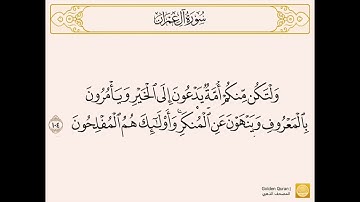 سُورَةُ آلِ عِمْرَان
وَلْتَكُن مِّنكُمْ أُمَّةٌ يَدْعُونَ إِلَى الْخَيْرِ وَيَأْمُرُونَ
بِالْمَعْرُوفِ وَيَنْهَوْنَ عَنِ الْمُنكَرِ ۚ وَأُولَٰئِكَ هُمُ الْمُفْلِحُونَ ١٠٤
Golden Quran |
المصحف الذهبي